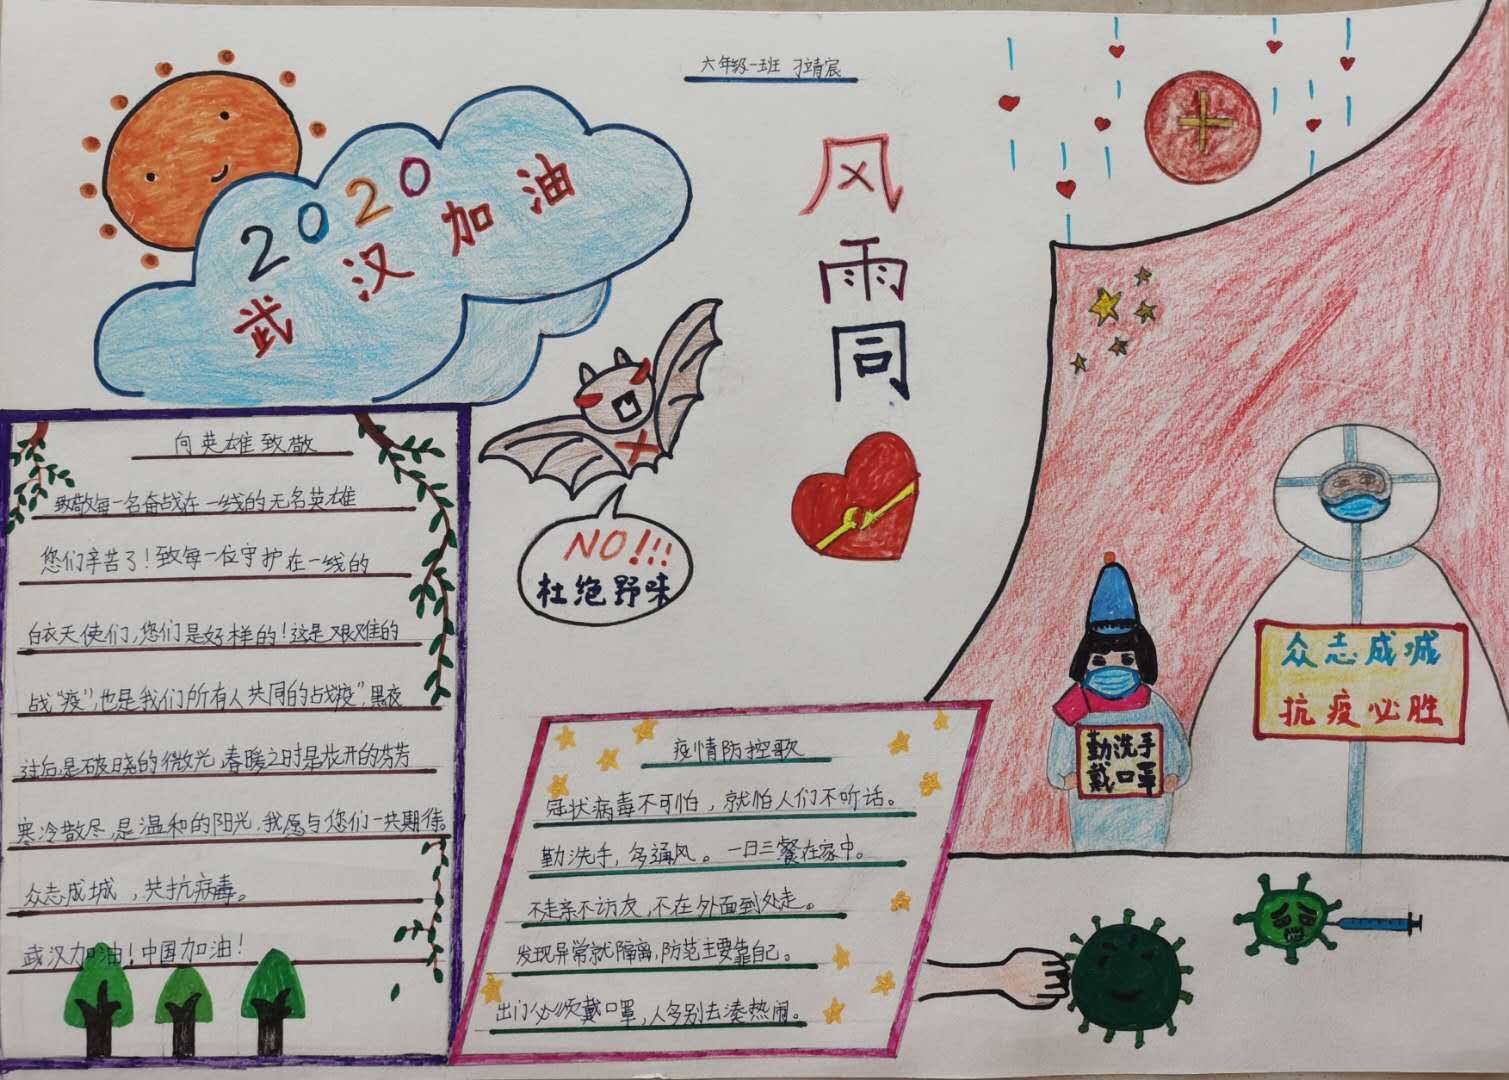 六年级一班 刁靖宸
2020
武汉加油
风雨同
向英雄致敬
致敬每一名奋战在一线的无名英雄
您们辛苦了！致每一位守护在一线的
白衣天使们，您们是好样的！这是艰难的
战“疫”，也是我们所有人共同的战“疫”，黑夜
过后，是破晓的微光，春暖之时是花开的芬芳
寒冷散尽，是温和的阳光，我愿与您们一共期待。
众志成城，共抗病毒。
武汉加油！中国加油！
NO!!!
杜绝野味
疫情防控歌
冠状病毒不可怕，就怕人们不听话。
勤洗手，多通风。一日三餐在家中。
不走亲不访友，不在外面到处走。
发现异常就隔离，防范主要靠自己。
出门必须戴口罩，人多别去凑热闹。
勤洗手
戴口罩
众志成城
抗疫必胜